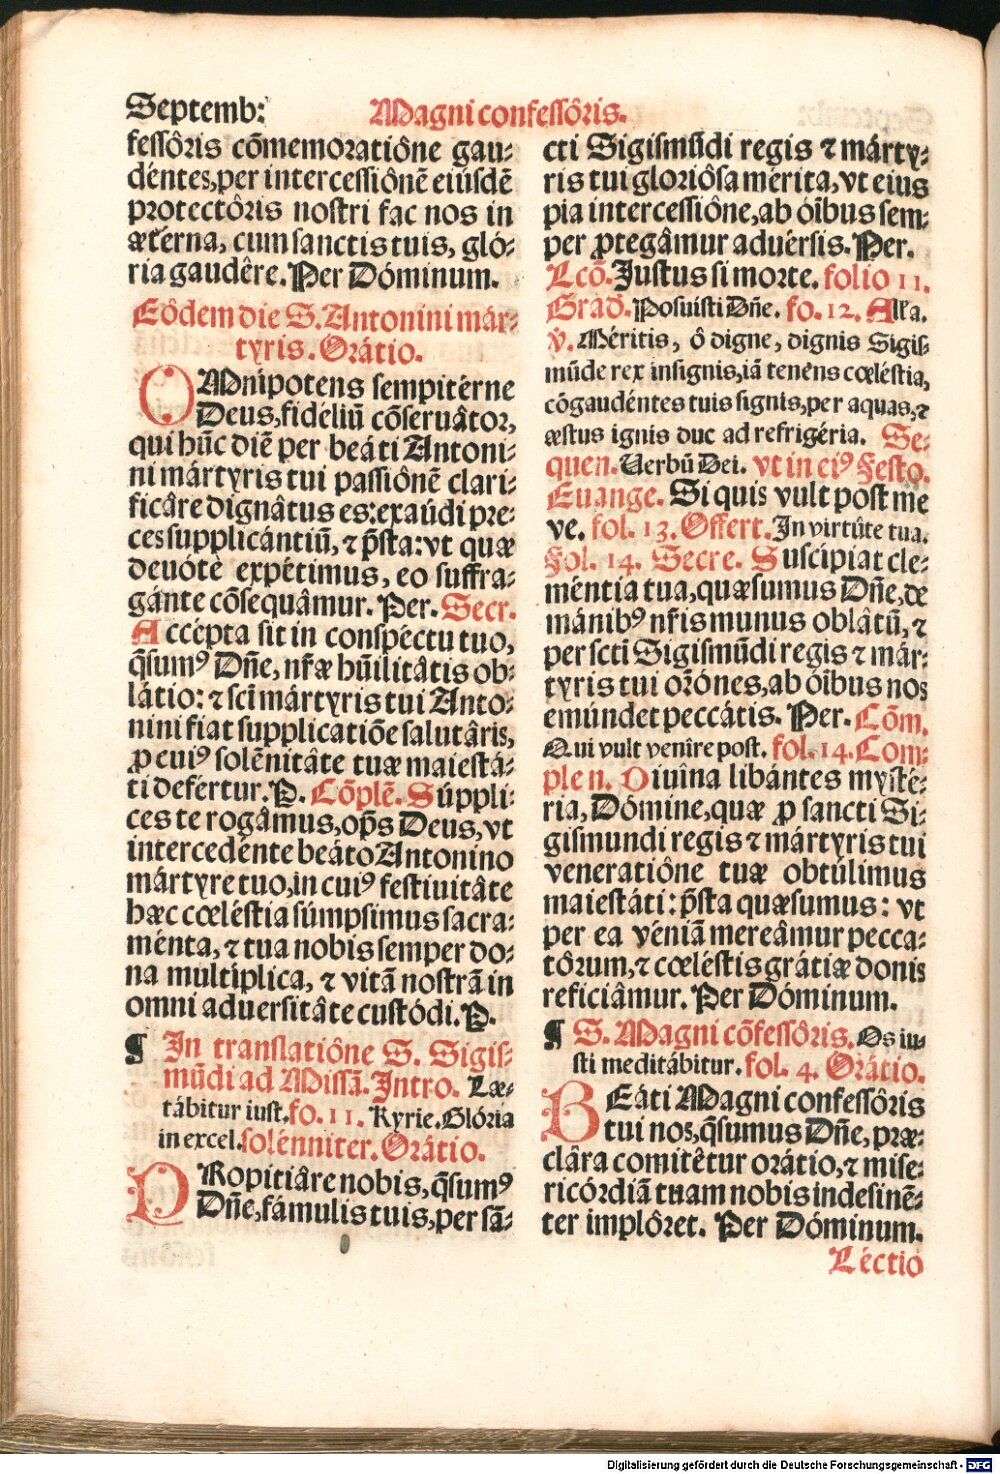 Septemb: Magni confessôris.
fessôris cõmemoratiône gau-
déntes, per intercessiônẽ eiúsdẽ
protectôris nostri fac nos in
ætérna, cum sanctis tuis, gló-
ria gaudêre. Per Dóminum.
Eôdem die S. Antonini már-
tyris. Orátio.
OMnipotens sempitérne
Deus, fidéliũ cõseruâtor,
qui hũc diẽ per beáti Antoni-
ni mártyris tui passiônẽ clari-
ficâre dignâtus es: exaúdi pre-
ces supplicántiũ, ⁊ p̃sta: vt quæ
deuótè expétimus, eo suffra-
gánte cõsequâmur. Per. Secr.
Accépta sit in conspéctu tuo,
q̃sumꝰ Dñe, nr̃æ hũilitâtis ob-
látio: ⁊ scĩ mártyris tui Anto-
nini fiat supplicatiõe salutâris,
ꝓ cuiꝰ solẽnitâte tuæ maiestá-
ti defértur. P. Cõplẽ. Súppli-
ces te rogâmus, op̃s Deus, vt
intercedénte beáto Antonino
mártyre tuo, in cuiꝰ festiuitâte
hæc cœléstia súmpsimus sacra-
ménta, ⁊ tua nobis semper do-
na multíplica, ⁊ vitã nostrã in
omni aduersitâte custódi. P.
¶ In translatiône S. Sigis-
mũdi ad Missã. Intro. Læ-
tábitur iust. fo. 11. Kyrie. Glória
in excel. solénniter. Orátio.
PRopitiâre nobis, q̃sumꝰ
Dñe, fámulis tuis, per sã-
cti Sigismũdi regis ⁊ márty-
ris tui gloriôsa mérita, vt eius
pia intercessiône, ab óĩbus sem-
per ꝓtegâmur aduérsis. Per.
Lcõ. Justus si morte. folio 11.
Grad̃. Posuisti Dñe. fo. 12. Alľa.
v̓. Méritis, ô digne, dignis Sigis-
mũde rex insignis, iã tenens cœléstia,
cõgaudéntes tuis signis, per aquas, ⁊
æstus ignis duc ad refrigéria. Se-
quen. Verbũ Dei. vt in eiꝰ Festo.
Euange. Si quis vult post me
ve. fol. 13. Offert. In virtûte tua.
Fol. 14. Secre. Suscipiat cle-
méntia tua, quæsumus Dñe, de
mánibꝰ nr̃is munus oblâtũ, ⁊
per scti Sigismũdi regis ⁊ már-
tyris tui or̃ónes, ab óĩbus nos
emúndet peccátis. Per. Cõm.
Qui vult venîre post. fol. 14. Com-
plen. Diuîna libántes mysté-
ria, Dómine, quæ ꝓ sancti Si-
gismundi regis ⁊ mártyris tui
veneratiône tuæ obtúlimus
maiestáti: p̃sta quæsumus: vt
per ea véniã mereâmur pecca-
tôrum, ⁊ cœléstis grátiæ donis
reficiâmur. Per Dóminum.
¶ S. Magni cõfessôris. Os iu-
sti meditábitur. fol. 4. Orátio.
BEáti Magni confessôris
tui nos, q̃sumus Dñe, præ-
clára comitêtur orátio, ⁊ mise-
ricórdiã tuam nobis indesinẽ-
ter implôret. Per Dóminum.
Léctio
Digitalisierung gefördert durch die Deutsche Forschungsgemeinschaft - DFG